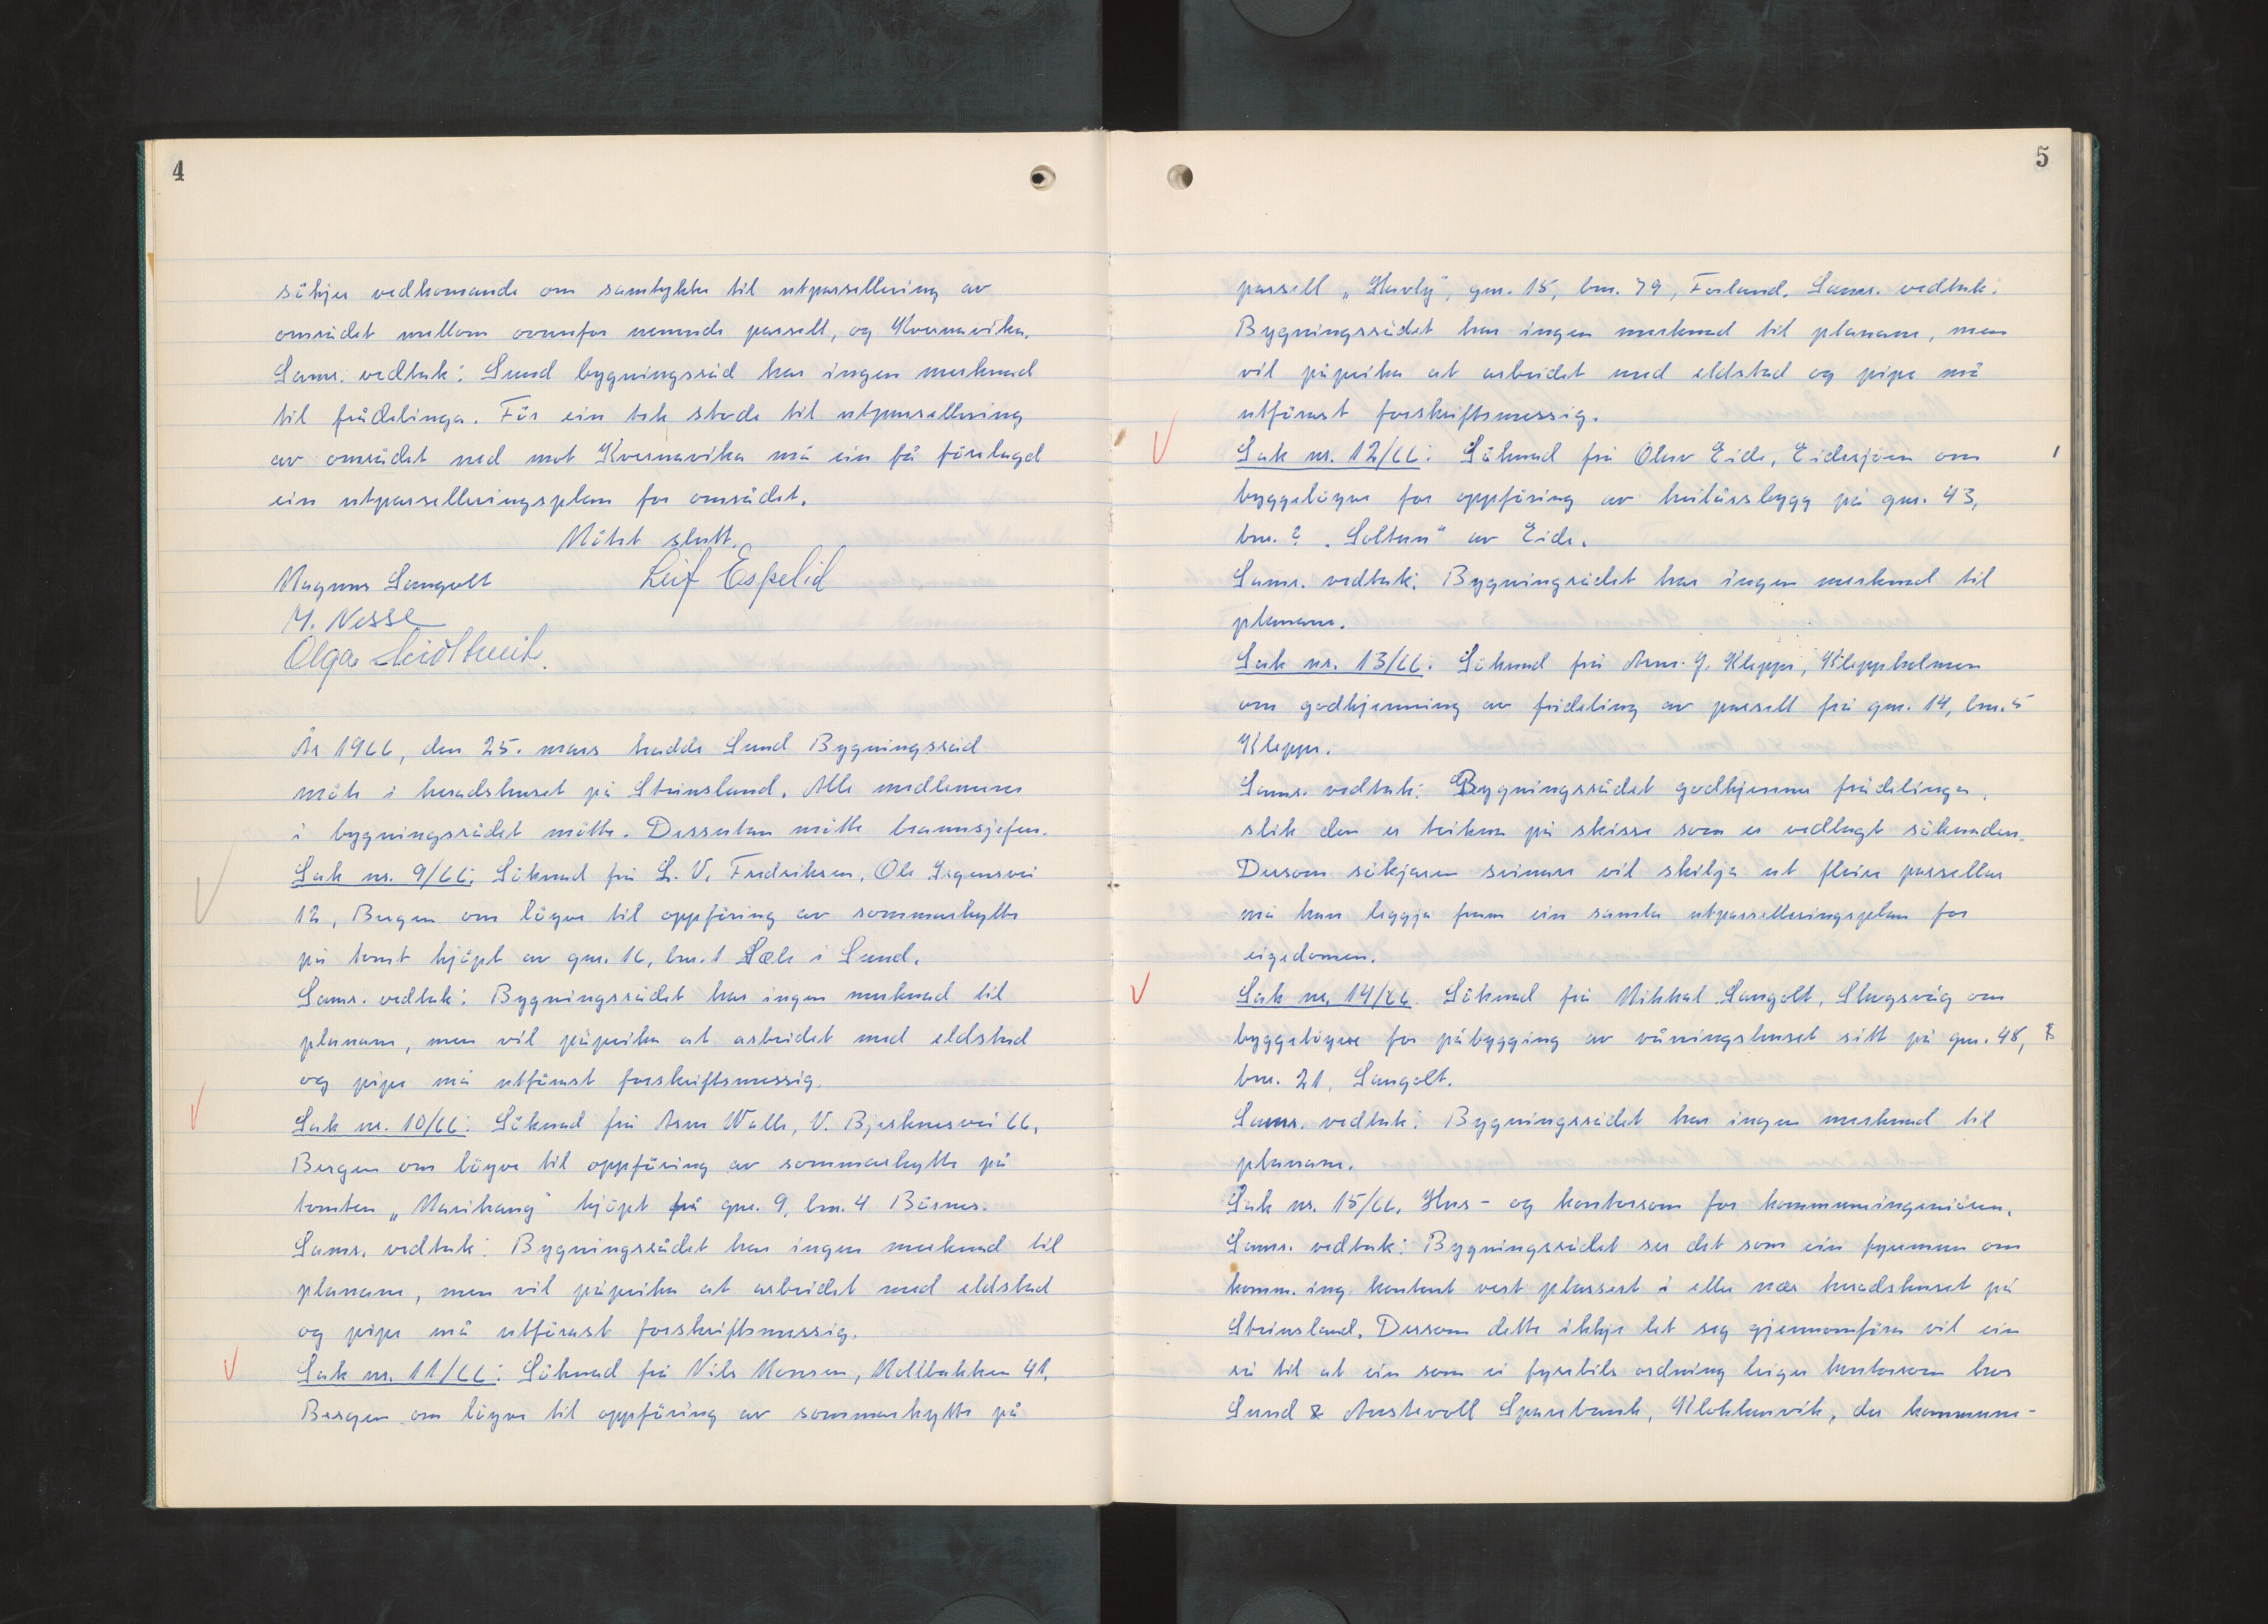 4
søkjer vedkomande om samtykke til utparsellering av
området mellom ovanfor nemnde parsell, og Kvernavika.
Sams. vedtak: Sund bygningsråd har ingen merknad
til frådelinga. Før ein tek stode til utparsellering
av området ned mot Kvernavika må ein få förelagd
ein utparselleringsplan for området.
Møtet slutt.
Magnus Langolt Leif Espelid
M. Nesse
Olga
År 1966, den 25. mars hadde Sund Bygningsråd
møte i heradshuset på Steinsland. Alle medlemene
i bygningsrådet møtte. Dessutan møtte brannsjefen.
Sak nr. 9/66: Søknad frå L. V. Fredriksen, Ole Irgensvei
12, Bergen om løyve til oppføring av sommarhytte
på tomt kjøpt av gnr. 16, bnr. 1 Sæle i Sund.
Sams. vedtak: Bygningsrådet har ingen merknad til
planane, men vil påpeika at arbeidet med eldstad
og pipe må utførast forskriftsmessig.
Sak nr. 10/66: Søknad frå Arne Walle, V. Bjerknesvei 66,
Bergen om løyve til oppføring av sommarhytte på
tomten „Marihaug" kjøpt frå gnr. 9, bnr. 4 Børnes.
Sams. vedtak: Bygningsrådet har ingen merknad til
planane, men vil påpeika at arbeidet med eldstad
og pipe må utførast forskriftsmessig.
Sak nr. 11/66: Søknad frå Nils Monsen, Møllbakken 41,
Bergen om løyve til oppføring av sommarhytte på
5
parsell „Havly", gnr. 15, bnr. 79, Forland. Sams. vedtak:
Bygningsrådet har ingen merknad til planane, men
vil påpeika at arbeidet med eldstad og pipe må
utførast forskriftsmessig.
Sak nr. 12/66: Søknad frå Olav Eide, Eidesjøen om
byggeløyve for oppføring av heilårsbygg på gnr. 43,
bnr. ? „Soltun" av Eide.
Sams. vedtak: Bygningsrådet har ingen merknad til
planane.
Sak nr. 13/66: Søknad frå Arne J. Kleppe, Kleppholmen
om godkjenning av frådeling av parsell frå gnr. 14, bnr. 5
Kleppe.
Sams. vedtak: Bygningsrådet godkjenner frådelinga,
slik den er teikna på skisse som er vedlagt søknaden.
Dersom søkjaren seinare vil skilja ut fleire parsellar
må han leggja fram ein samla utparselleringsplan for
eigedomen.
Sak nr. 14/66 Søknad frå Mikkal Langolt, Skogsvåg om
byggeløyve for påbygging av våningshuset sitt på gnr. 48,
bnr. 21, Langolt.
Sams. vedtak: Bygningsrådet har ingen merknad til
planane.
Sak nr. 15/66. Hus- og kontorrom for kommuneingeniøren.
Sams. vedtak: Bygningsrådet ser det som ein fyremun om
komm. ing. kontoret vert plassert i eller nær heradshuset på
Steinsland. Dersom dette ikkje let seg gjennomføra vil ein
rå til at ein som ei fyrebils ordning leiger kontorrom hos
Sund & Austevoll Sparebank, Klokkarvik, der kommune-